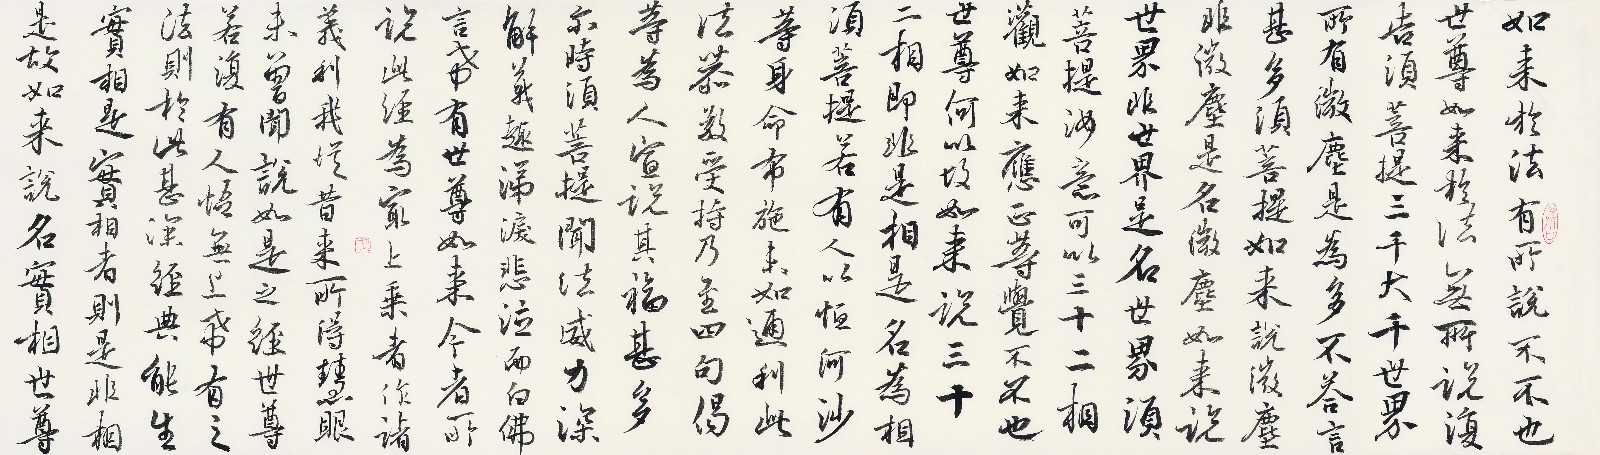 如来於法有所說不不也
世尊如来於法無所说復
告須菩提三千大千世界
所有微塵是為多不答言
甚多須菩提如来說微塵
非微塵是名微塵如来说
世界非世界是名世界須
菩提汝意可以三十二相
觀如来應正等覺不不也
世尊何以故如来说三十
二相即非是相是名為相
須菩提若有人以恒河沙
等身命布施未如通利此
法恭敬受持乃至四句偈
等為人宣说其福甚多
尔時須菩提聞法威力深
解義趣涕淚悲泣而白佛
言希有世尊如来今者所
说此經為最上乘者作諸
義利我從昔来所得慧眼
未曾聞說如是之經世尊
若復有人悟無上希有之
法則於此甚深經典能生
實相是實相者則是非相
是故如来說名實相世尊